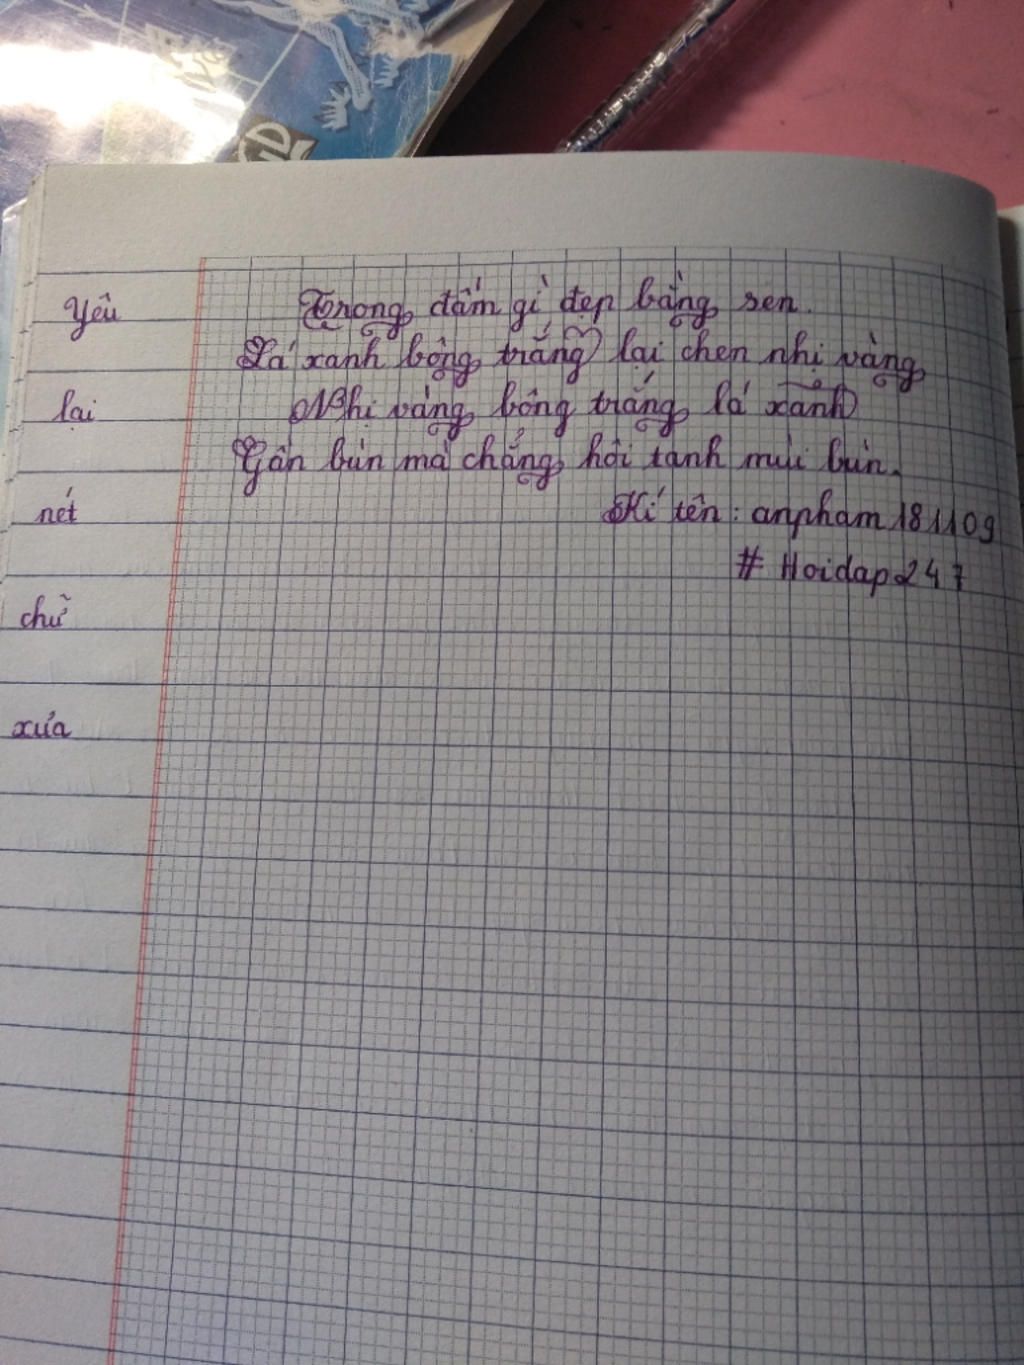 GD
Yêu
Trong đầm gì đẹp bằng sen.
Lá xanh bông trắng lại chen nhị vàng
lại
Nhị vàng bông trắng lá xanh
Gần bùn mà chẳng hôi tanh mùi bùn.
nét
Kí tên: anpham181109
# Hoidap247
chữ
xưa